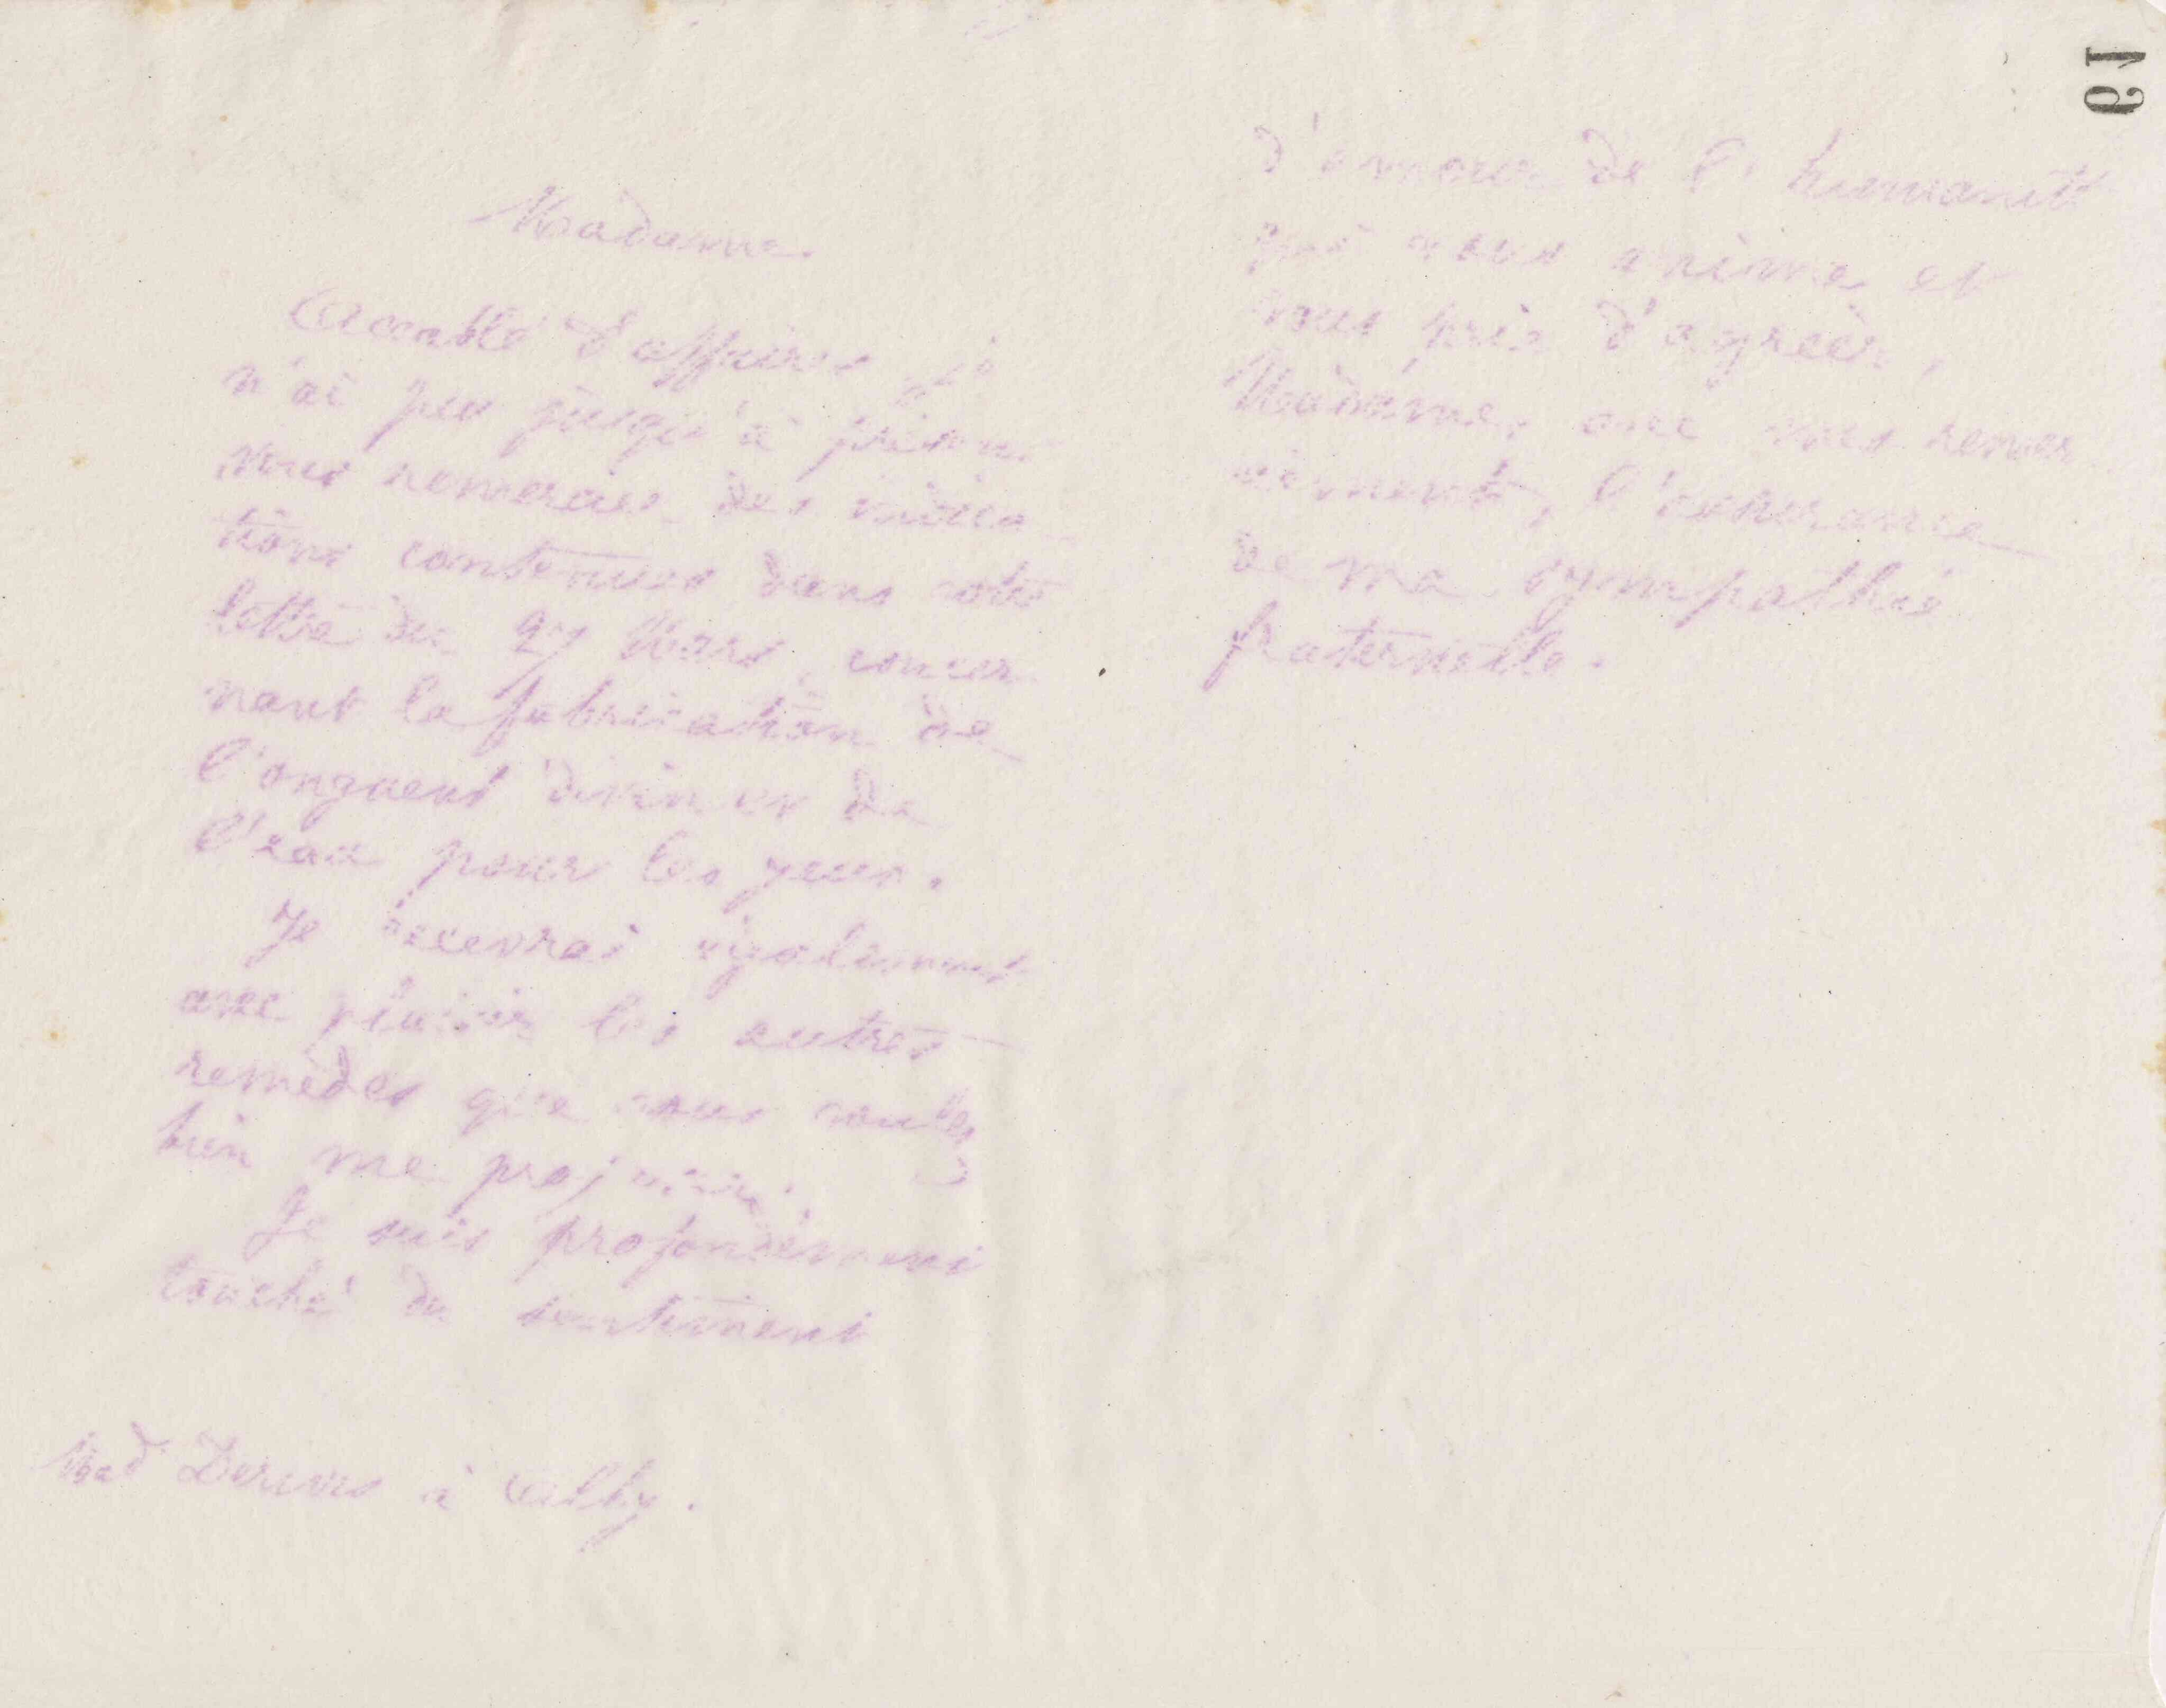 Madame.
Accablé d'affaires je
n'ai peu jusqu'à présent
vous remercier des indica
tions contenues dans votre
lettre du 27 Mars, concer
nant la fabrication de
l'onguent divin et de
l'eau pour les yeux.
Je recevrai également
avec plaisir les autres
remèdes que vous voulez
bien me
Je suis profondément
touché du sentiment
Mad à Alby.
61
d'amour de l'humanité
qui vous anime et
vous prie d'agréer,
Madame, avec mes remer
ciments, l'
de ma sympathie
fraternelle.